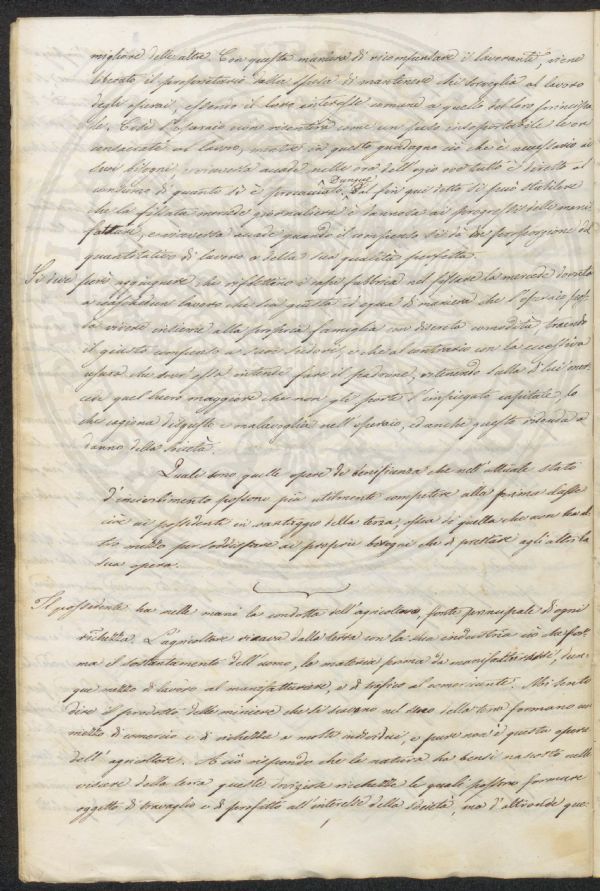 migliore delle altre. Con questa maniera di ricompensare il lavorante, viene
liberato il proprietario dalla spesa di mantenere chi sorveglia al lavoro
degli operai, essendo il loro interesse comune a quello del loro principa
le. Così l'operaio non risentirà come un peso insoportabile le ore
consacrate al lavoro, mentre in questo guadagna ciò che è necessario ai
suoi bisogni, e viceversa accade nelle ore dell'ozio ove tutto è diretto al
consumo di quanto si è procacciato. Dunque Dal fin qui detto si può stabilire
che la fissata mercede giornaliera è dannosa ai progressi delle mani
fatture, e viceversa accade quando il compenso si dà in proporzione del
quantitativo di lavoro e della sua qualità perfetta.
Si deve pure aggiugnere che rifletterà il capo fabbrica nel fissare la mercede dovuta
a ciascadun lavoro che sia giusta ed equa di maniera che l'operaio pos
sa vivere insieme alla propria famiglia con discreta comodità, traendo
il giusto compenso a' suoi sudori, e che al contrario con la eccessiva
usura che sovr'esso intende fare il padrone, ritenendo sulla di lui mer
cede quel lucro maggiore che non gli porta l'impiegato capitale, lo
che cagiona disgusto e malavoglia nell'operaio, ed anche questo ridonda a
danno della società.
Quale sono quelle opere di beneficenza che nell'attuale stato
d'incivilimento possono più utilmente competere alla prima classe
cioè ai possidenti in vantaggio della terza, ossia di quella che non ha al
tro mezzo per soddisfare ai propri bisogni che di prestare agli altri la
sua opera.
Il possidente ha nelle mani la condotta dell'agricoltura, fonte principale di ogni
richezza. L'agricoltore ricava dalla terra con la sua industria ciò che for
ma il sostentamento dell'uomo, la materia prima da manifatturarsi, dun
que mezzo di lavoro al manifatturiere, e di trafico al comerciante. Mi sento
dire il prodotto delle miniere che si scavano nel seno della terra formano un
mezzo di comercio e di richezza a molti individui, e pure non è questa opera
dell'agricoltore. A ciò rispondo che la natura ha bensì nascosto nelle
viscere della terra queste doviziose richezze le quali possono formare
oggetto di travaglio e di profitto all'interesse della società, ma d'altronde que